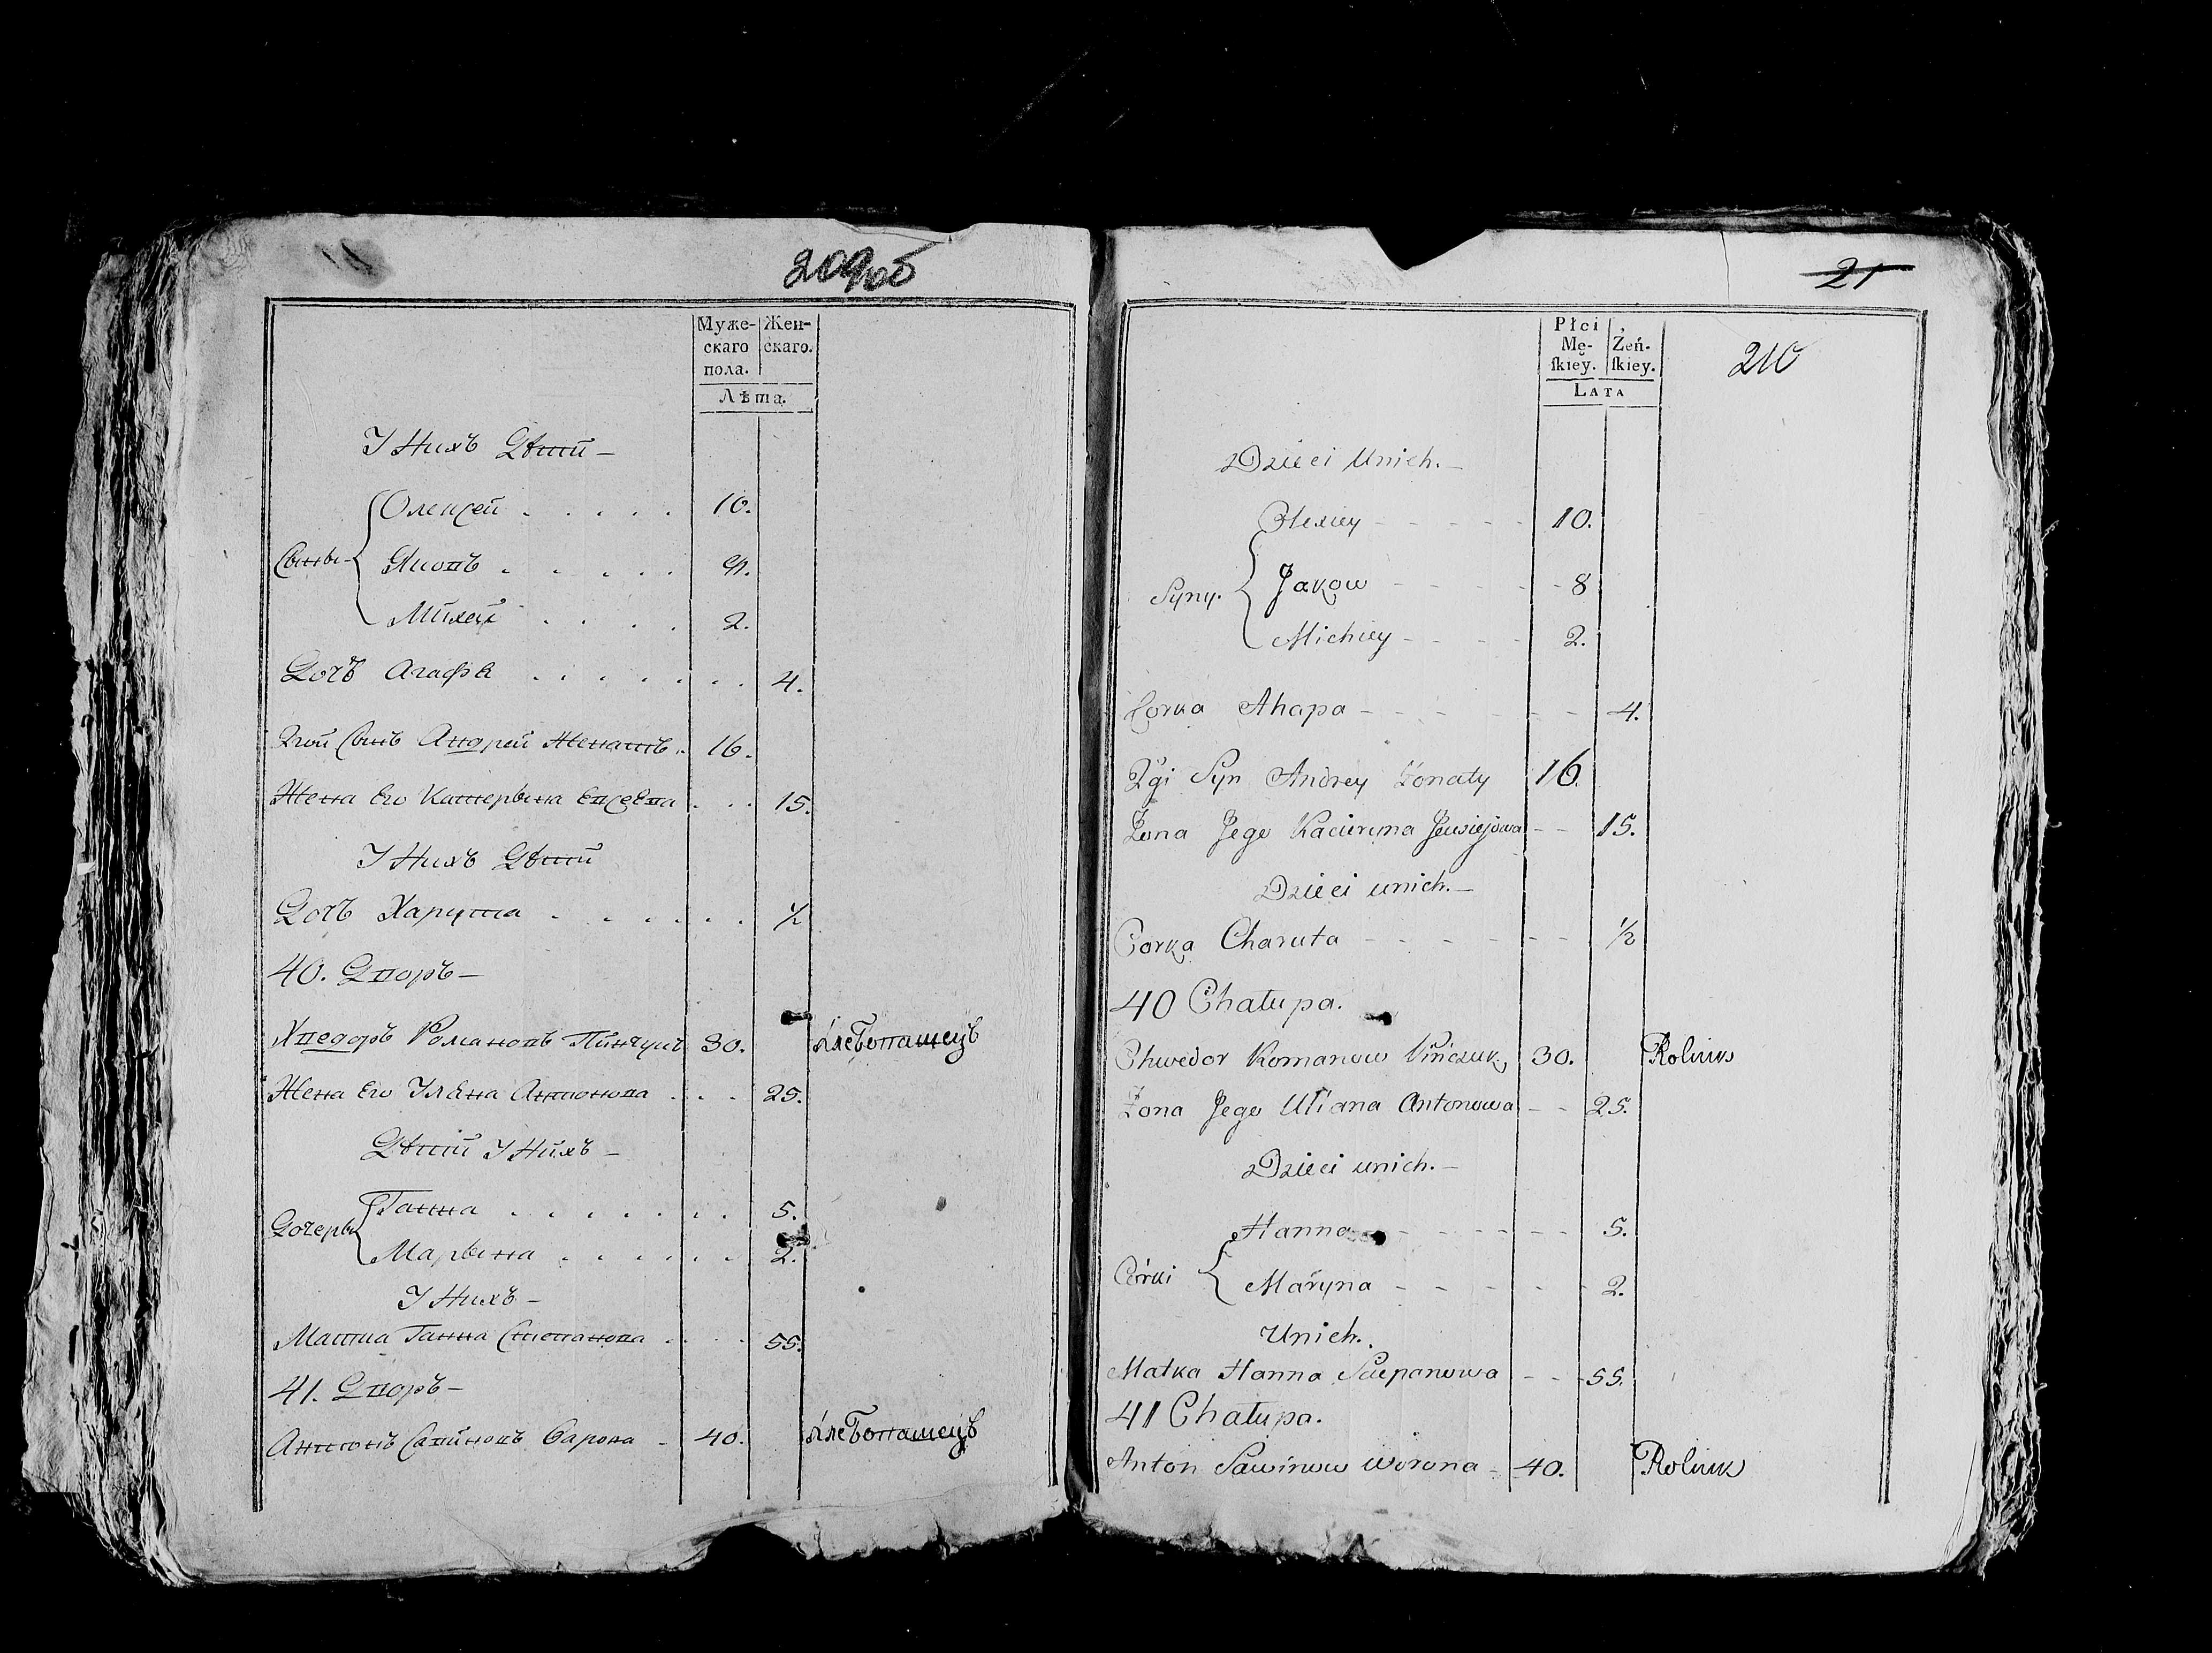 209об
Муже-
скаго
пола.
Жен-
скаго.
Лѣта.
У Нихъ Дѣти –
Сыны –
Олексей 10.
Яковъ 8.
Михей 2.
Дочъ Агафѣ 4.
2гой Сынъ Андрей Женатъ 16.
Жена Его Катерына Евсеева 15.
У Нихъ Дѣти
Дочъ Харута ½
40. Дворъ –
Хведоръ Романовъ Пинчукъ 30. хлебопашецъ
Жена Его Уляна Антонова 25.
Дѣти У Нихъ –
Дочеры
Ганна 5.
Марына 2.
У Нихъ –
Матка Ганна Степанова 55.
41. Дворъ –
Антонъ Савиновъ Варона 40. хлебопашецъ
21
210
Płci
Mę-
ſkiey.
Żeń-
ſkiey.
LATA
Dzieci Unich. –
Syny.
Olexiey 10.
Jakow 8
Michiey 2.
Corka Ahapa 4.
2gi Syn Andrey Żonaty 16.
Żona Jego Kacieryna Jewsiejowa 15.
Dzieci unich. –
Corka Charuta ½
40 Chałupa.
Chwedor Romanow Pińczuk 30. Rolnik
Żona Jego Uliana Antonowa 25.
Dzieci unich. –
Córki
Hanna 5.
Maryna 2.
Unich.
Matka Hanna Sciepanowa 55.
41 Chałupa.
Anton Sawinow Worona 40. Rolnik